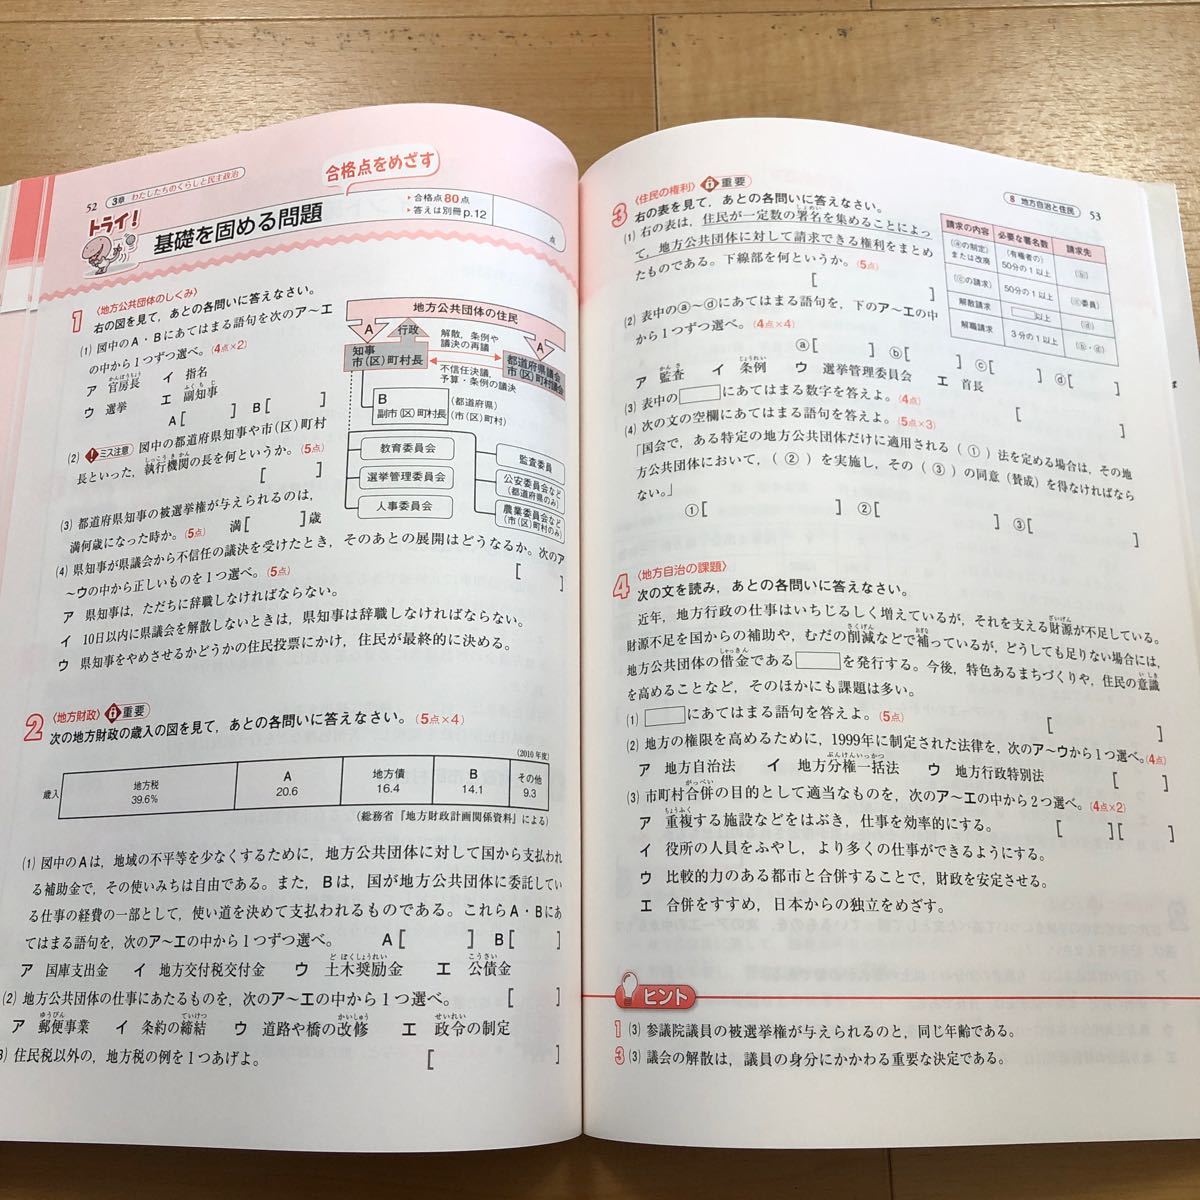 52 3章 わたしたちのくらしと民主政治
合格点をめざす
トライ!
基礎を固める問題
▸合格点80点
▸答えは別冊p.12
点
1 〈地方公共団体のしくみ〉
右の図を見て,あとの各問いに答えなさい。
(1) 図中のA・Bにあてはまる語句を次のア～エ
の中から1つずつ選べ。(4点×2)
ア 官房長 イ 指名
ウ 選挙 エ 副知事
A[ ] B[ ]
(2) ミス注意 図中の都道府県知事や市(区)町村
長といった,執行機関の長を何というか。(5点)
[ ]
(3) 都道府県知事の被選挙権が与えられるのは,
満何歳になった時か。(5点) 満[ ]歳
(4) 県知事が県議会から不信任の議決を受けたとき,そのあとの展開はどうなるか。次のア
～ウの中から正しいものを1つ選べ。(5点) [ ]
ア 県知事は,ただちに辞職しなければならない。
イ 10日以内に県議会を解散しないときは,県知事は辞職しなければならない。
ウ 県知事をやめさせるかどうかの住民投票にかけ,住民が最終的に決める。
地方公共団体の住民
A
行政
A
知事
市(区)町村長
解散,条例や
議決の再議
不信任決議,
予算・条例の議決
都道府県議会
市(区)町村議会
B
副市(区)町村長
(都道府県)
(市(区)町村)
教育委員会
選挙管理委員会
人事委員会
監査委員
公安委員会など
(都道府県のみ)
農業委員会など
(市(区)町村のみ)
2 〈地方財政〉 重要
次の地方財政の歳入の図を見て,あとの各問いに答えなさい。(5点×4)
(2010年度)
歳入 地方税 39.6% A 20.6 地方債 16.4 B 14.1 その他 9.3
(総務省『地方財政計画関係資料』による)
(1) 図中のAは,地域の不平等を少なくするために,地方公共団体に対して国から支払われ
る補助金で,その使いみちは自由である。また,Bは,国が地方公共団体に委託してい
る仕事の経費の一部として,使い道を決めて支払われるものである。これらA・Bにあ
てはまる語句を,次のア～エの中から1つずつ選べ。 A[ ] B[ ]
ア 国庫支出金 イ 地方交付税交付金 ウ 土木奨励金 エ 公債金
(2) 地方公共団体の仕事にあたるものを,次のア～エの中から1つ選べ。 [ ]
ア 郵便事業 イ 条約の締結 ウ 道路や橋の改修 エ 政令の制定
3) 住民税以外の,地方税の例を1つあげよ。 [ ]
8 地方自治と住民 53
3 〈住民の権利〉 重要
右の表を見て,あとの各問いに答えなさい。
(1) 右の表は,住民が一定数の署名を集めることによっ
て,地方公共団体に対して請求できる権利をまとめ
たものである。下線部を何というか。(5点)
[ ]
(2) 表中のⓐ～ⓓにあてはまる語句を,下のア～エの中
から1つずつ選べ。(4点×4)
ⓐ[ ] ⓑ[ ] ⓒ[ ] ⓓ[ ]
ア 監査 イ 条例 ウ 選挙管理委員会 エ 首長
(3) 表中の□にあてはまる数字を答えよ。(4点) [ ]
(4) 次の文の空欄にあてはまる語句を答えよ。(5点×3)
「国会で,ある特定の地方公共団体だけに適用される(①)法を定める場合は,その地
方公共団体において,(②)を実施し,その(③)の同意(賛成)を得なければなら
ない。」
①[ ] ②[ ] ③[ ]
請求の内容 必要な署名数 請求先
(ⓐの制定)または改廃 (有権者の)50分の1以上 (ⓑ)
(ⓒの請求) 50分の1以上 (ⓒ委員)
解散請求 □以上 (ⓓ)
解職請求 3分の1以上 (ⓑ・ⓓ)
4 〈地方自治の課題〉
次の文を読み,あとの各問いに答えなさい。
近年,地方行政の仕事はいちじるしく増えているが,それを支える財源が不足している。
財源不足を国からの補助や,むだの削減などで補っているが,どうしても足りない場合には,
地方公共団体の借金である□を発行する。今後,特色あるまちづくりや,住民の意識
を高めることなど,そのほかにも課題は多い。
(1) □にあてはまる語句を答えよ。(5点) [ ]
(2) 地方の権限を高めるために,1999年に制定された法律を,次のア～ウから1つ選べ。(4点)
ア 地方自治法 イ 地方分権一括法 ウ 地方行政特別法 [ ]
(3) 市町村合併の目的として適当なものを,次のア～エの中から2つ選べ。(4点×2)
ア 重複する施設などをはぶき,仕事を効率的にする。 [ ][ ]
イ 役所の人員をふやし,より多くの仕事ができるようにする。
ウ 比較的力のある都市と合併することで,財政を安定させる。
エ 合併をすすめ,日本からの独立をめざす。
ヒント
1 (3) 参議院議員の被選挙権が与えられるのと,同じ年齢である。
3 (3) 議会の解散は,議員の身分にかかわる重要な決定である。